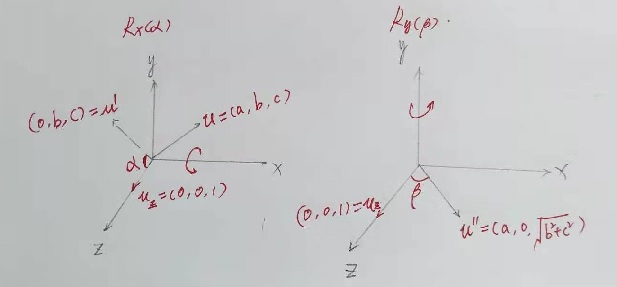 Rx(α)
y
(0,b,c)=u'
u=(a,b,c)
α
x
u_z=(0,0,1)
z
Ry(β).
y
x
(0,0,1)=u_z
β
u''=(a,0,√b²+c²)
z